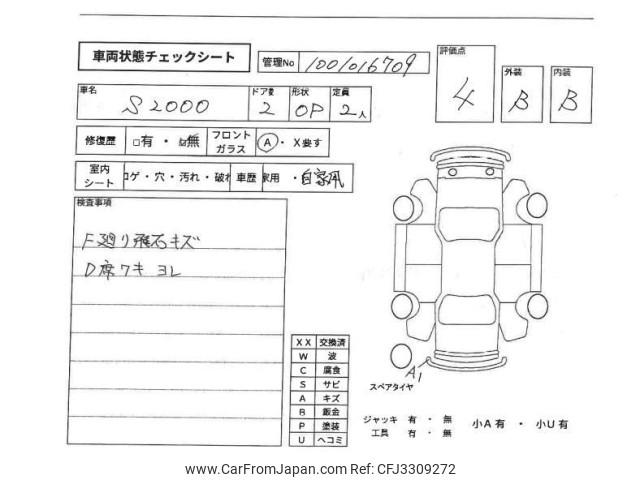 車両状態チェックシート
管理No 1001016709
評価点 4
外装 B
内装 B
車名 S2000
ドア数 2
形状 OP
定員 2人
修復歴 □有・☑無
フロントガラス A・X要す
室内シート コゲ・穴・汚れ・破れ
車歴 家用・自家用
検査事項
F廻り飛石キズ
D席ワキ ヨレ
XX 交換済
W 波
C 腐食
S サビ
A キズ
B 鈑金
P 塗装
U ヘコミ
A1
スペアタイヤ
ジャッキ 有・無
工具 有・無
小A有・小U有
www.CarFromJapan.com | Ref No. CFJ3309272